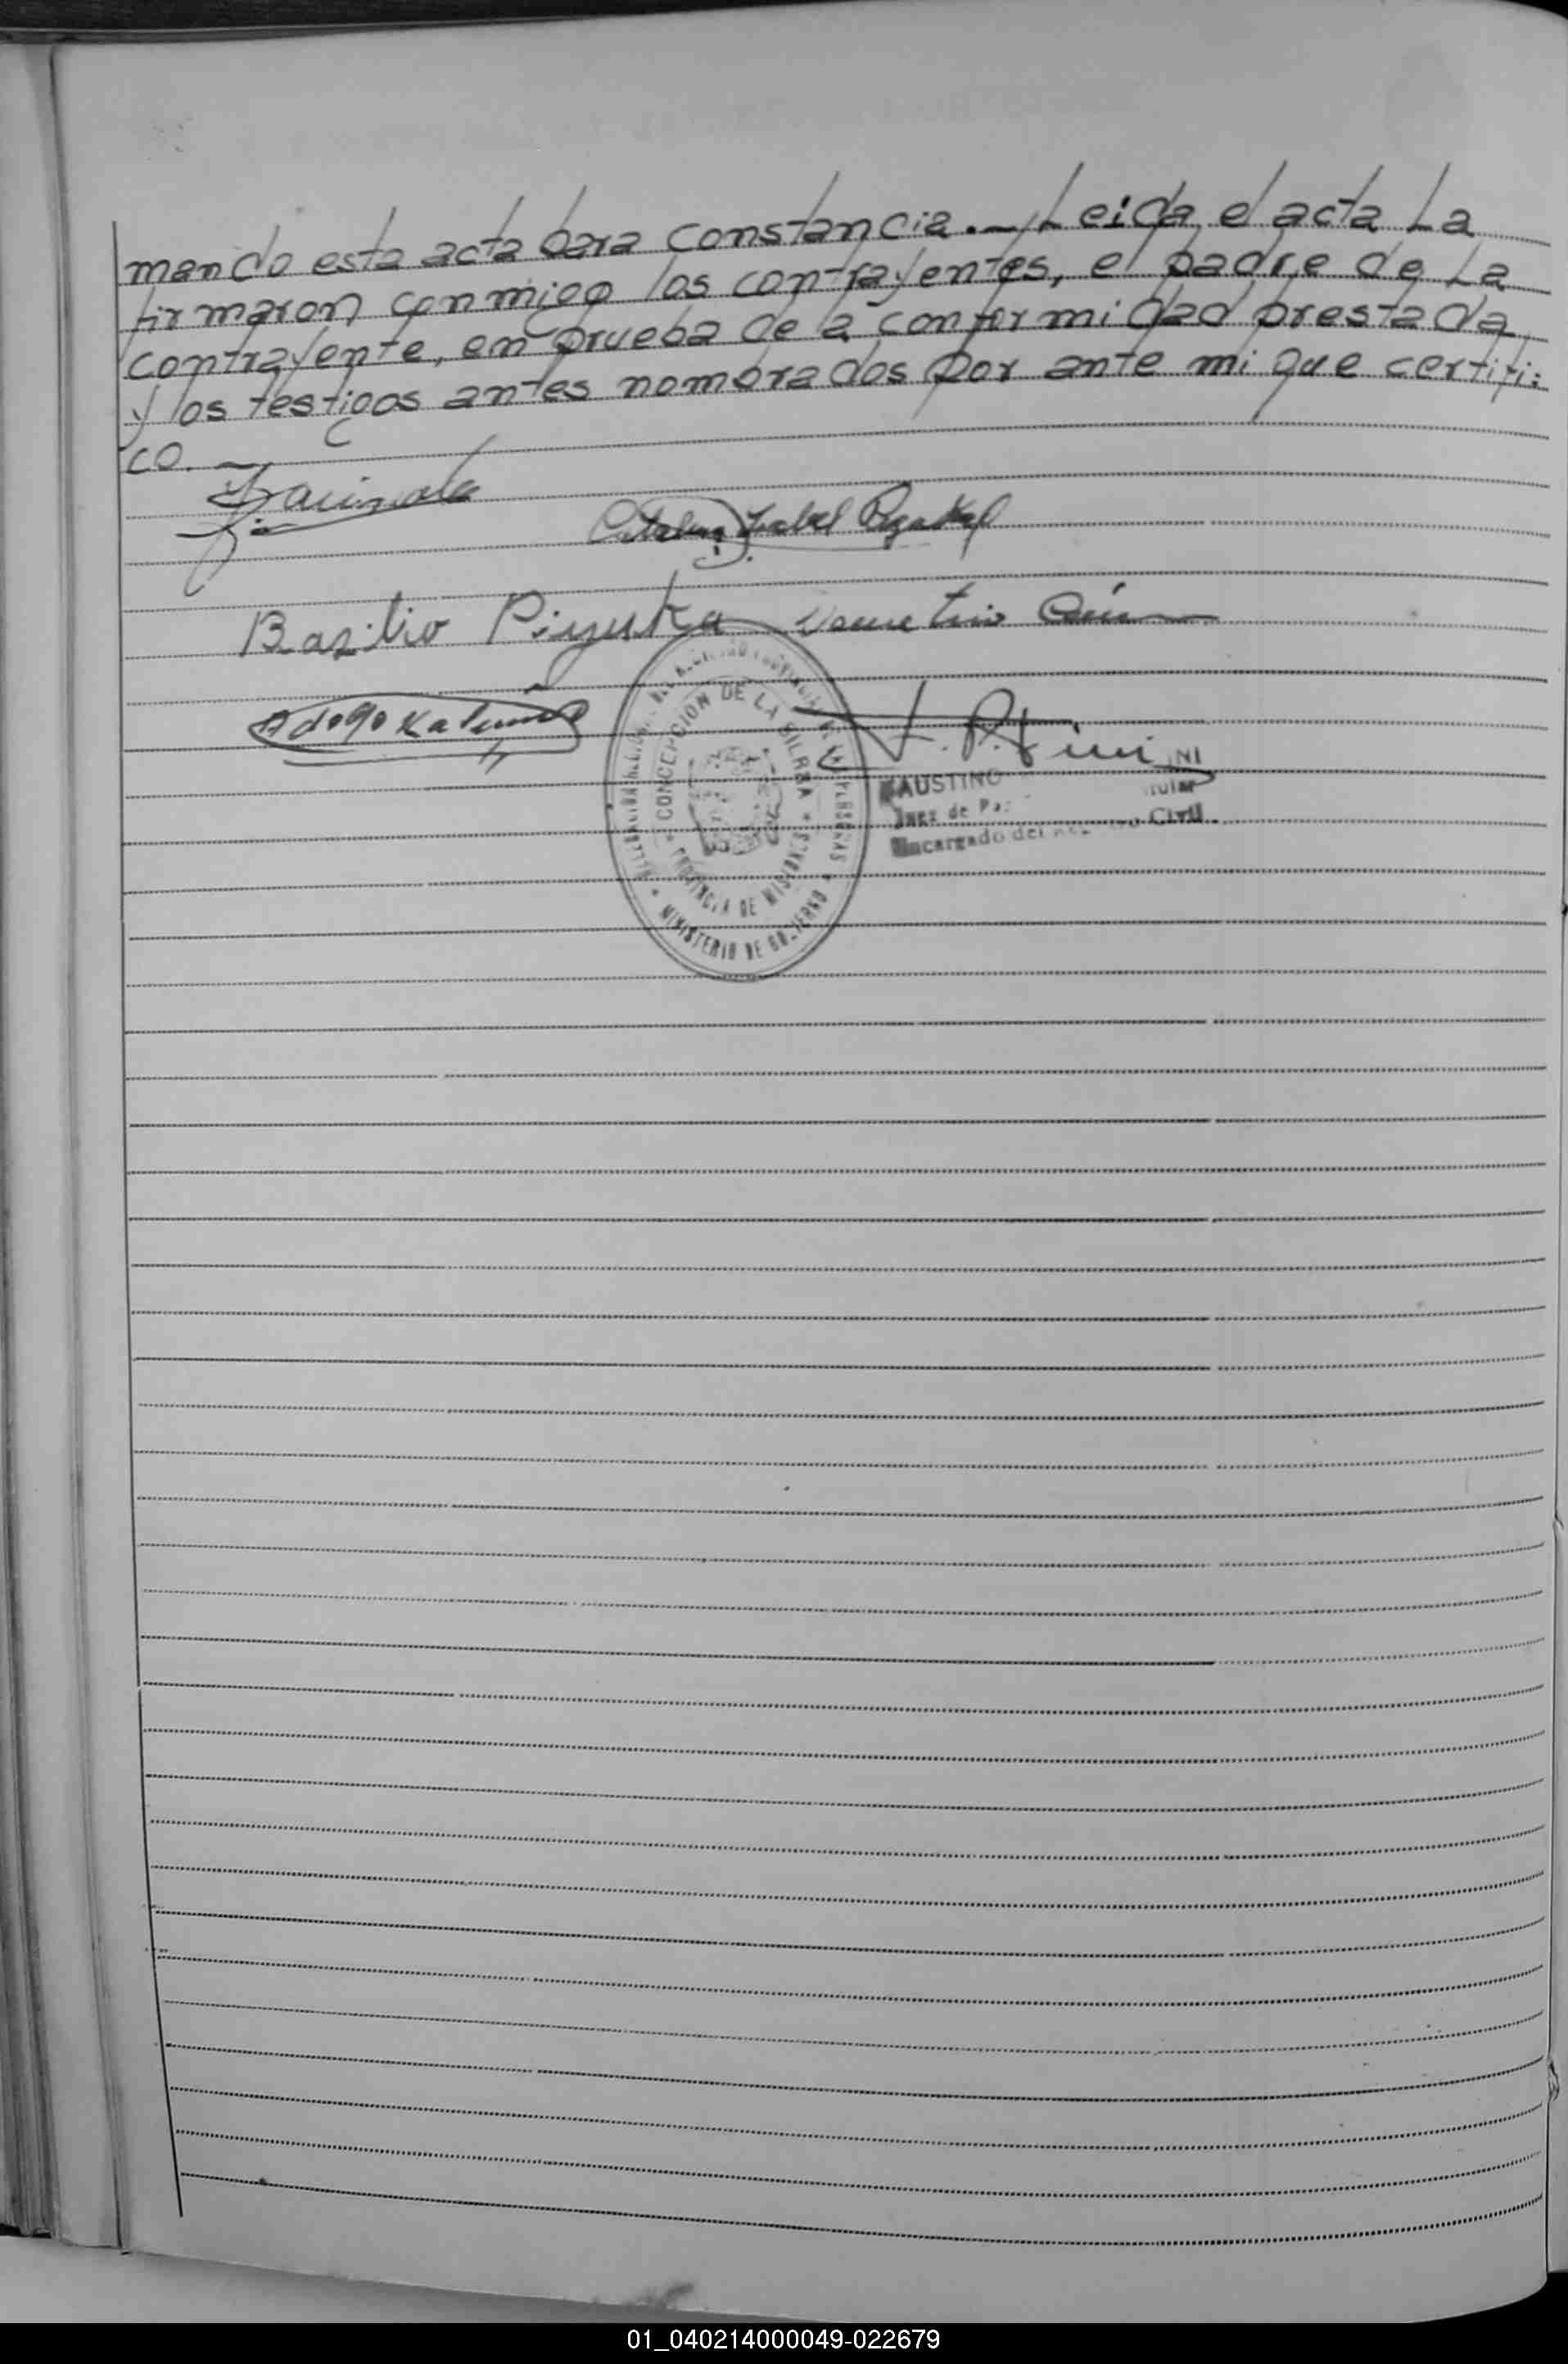 mando esta acta para constancia.- Leida el acta La
firmaron conmigo los contrayentes, el padre de La
contrayente, en prueba de la conformidad prestada
y los testigos antes nombrados por ante mi que certifi:
co.-
Isabel
Basilio
CONCEPCION DE LA SIERRA
PROVINCIA DE MISIONES
MINISTERIO DE GOBIERNO
FAUSTINO
INI
Juez de Paz
Titular
Encargado del Registro Civil.
01_040214000049-022679